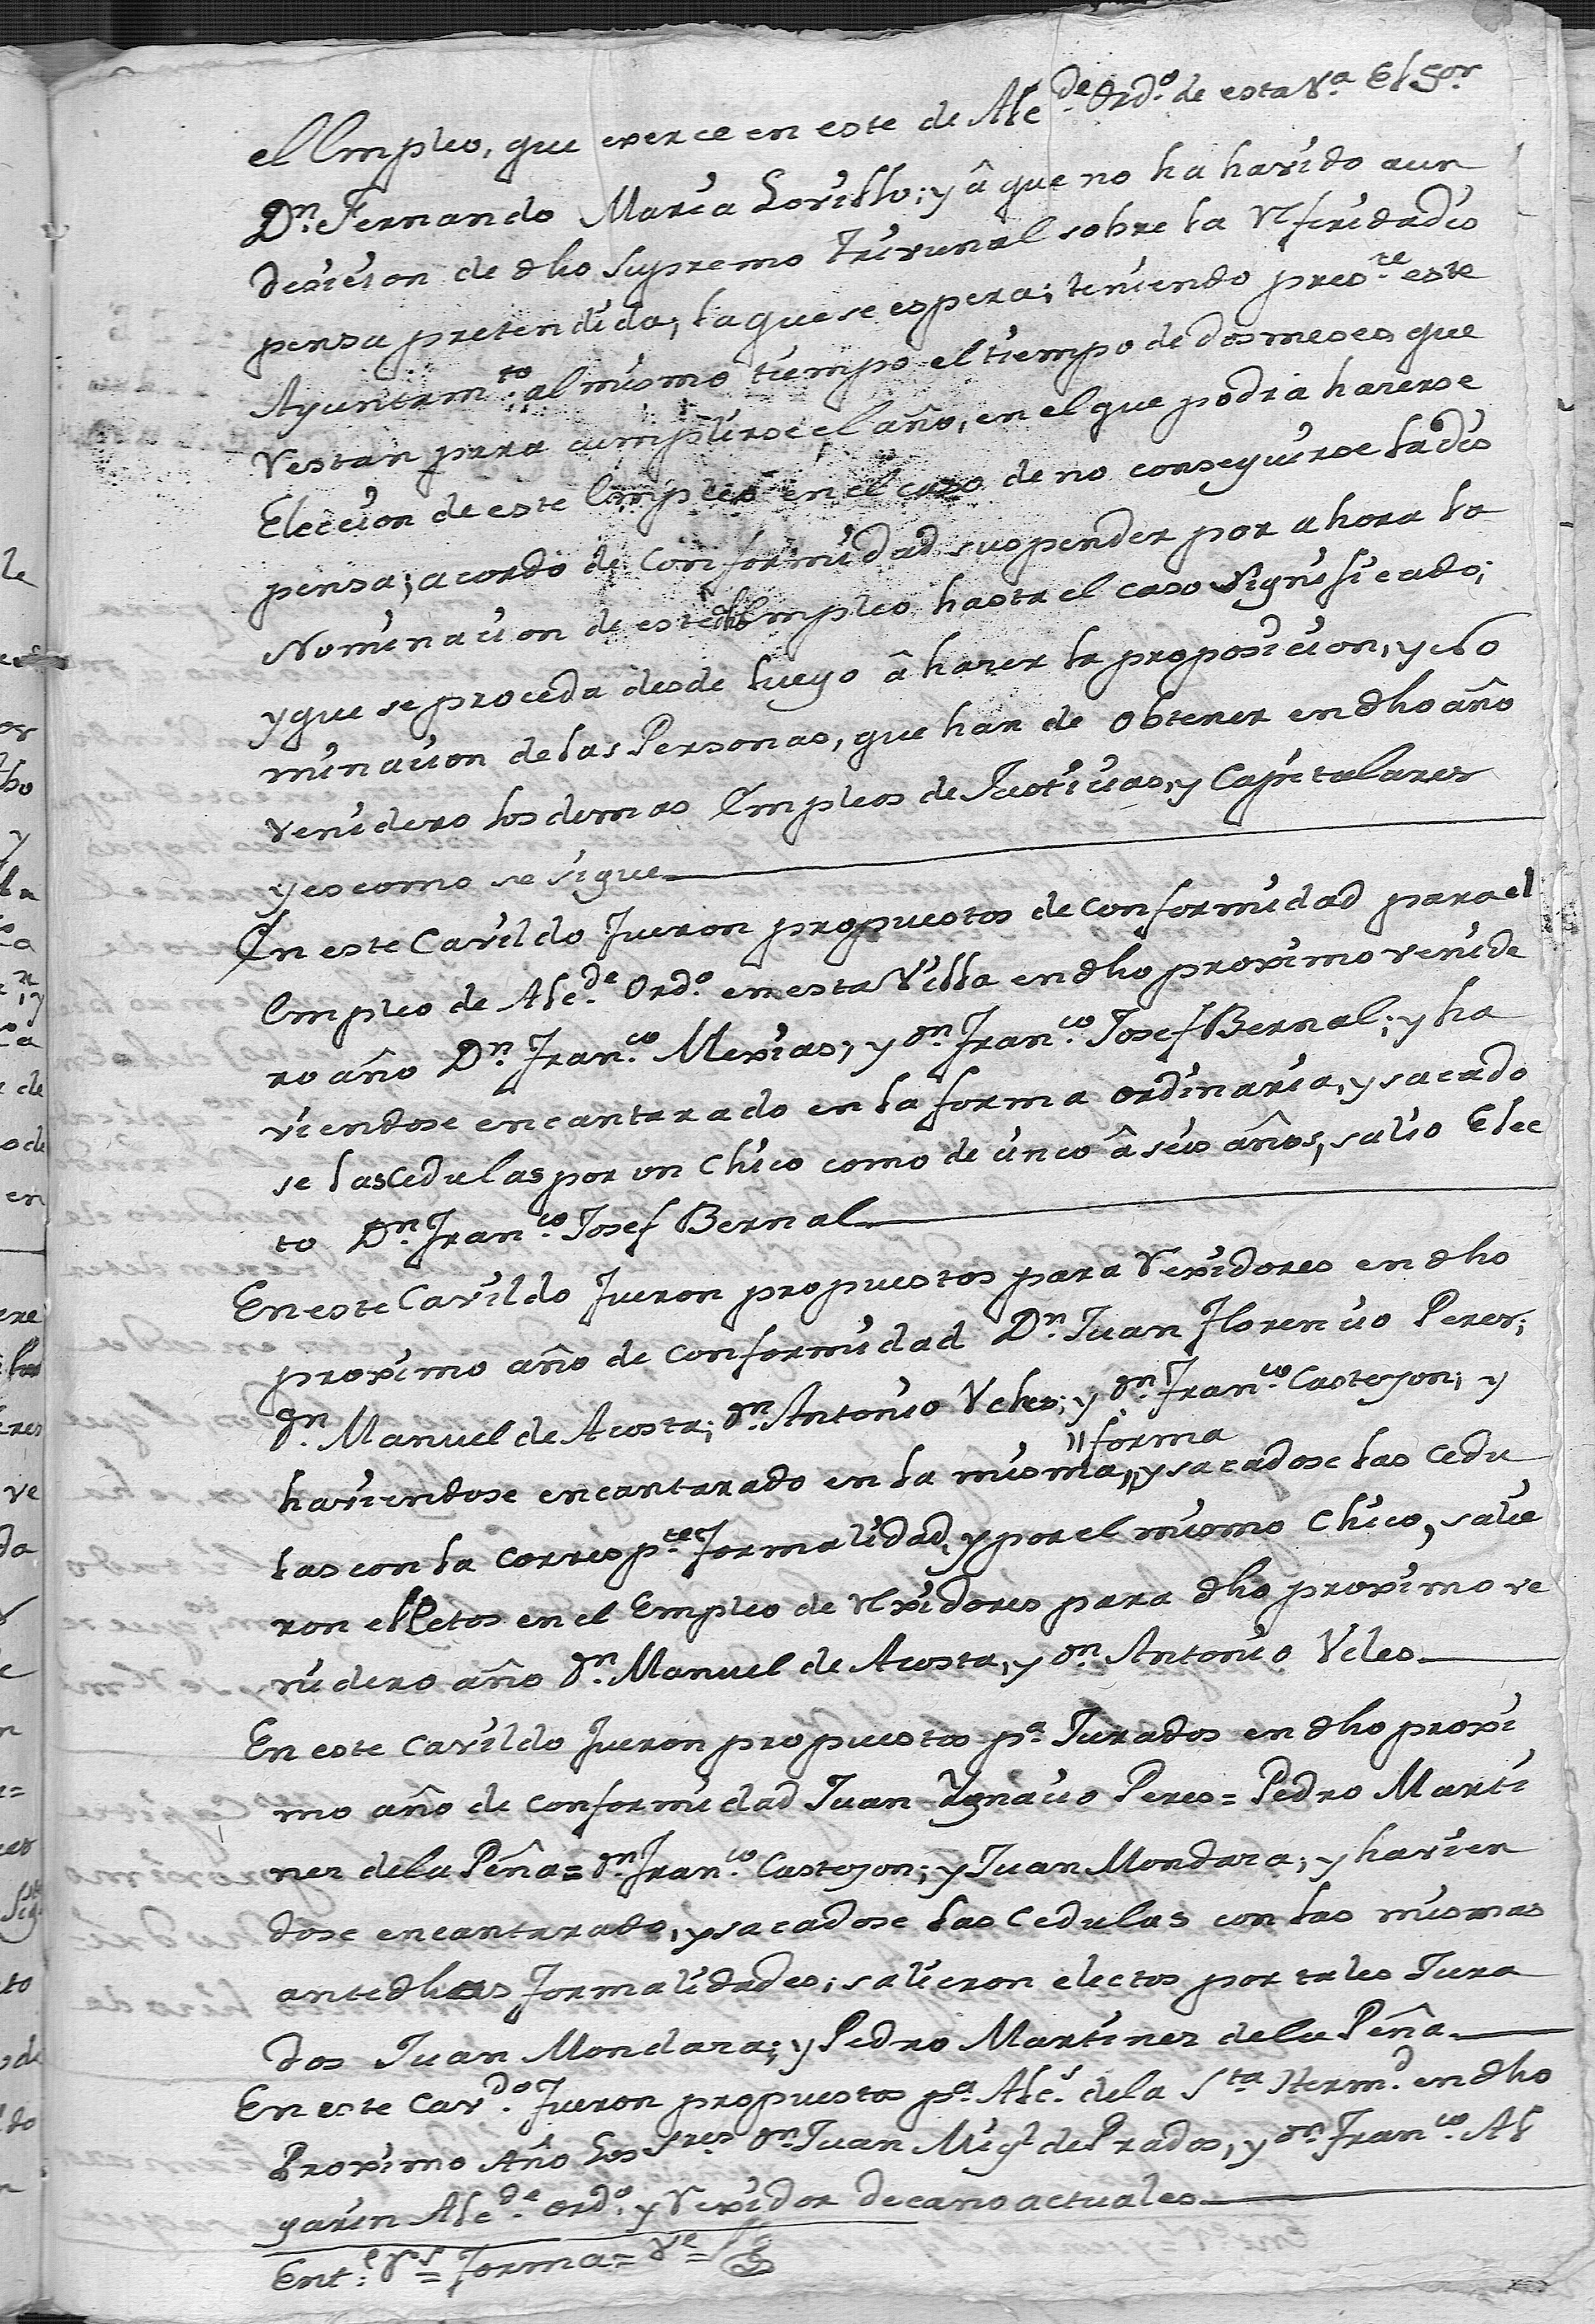 el Empleo, que exerce en este de Alc.de Ord.o de esta V.a El S.or
D.n Fernando Maria Lovillo; y â que no ha havido aun
decicion de dho Supremo Trivunal sobre la referida dis
pensa pretendida, la que se espera; teniendo pres.te este
Ayuntam.to al mismo tiempo el tiempo de dos meses que
restan para cumplirse el año, en el que podra hacerse
Eleccion de este Empleo en el caso de no conseguirse la dis
pensa; acordo de Conformidad suspender por ahora la
Nominacion de este dho Empleo hasta el caso significado;
y que se proceda desde luego â hacer la proposicion, y No
minacion de las Personas, que han de obtener en dho año
venidero los demas Empleos de Justicias, y Capitulares
y es como se sigue
En este Cavildo fueron propuestos de conformidad para el
Empleo de Alc.de Ord.o en esta Villa en dho proximo venide
ro año D.n Fran.co Mexias; y d.n Fran.co Josef Bernal; y ha
viendose encantarado en la forma ordinaria, y sacado
se las Cedulas por un Chico como de cinco â seis años, salio Elec
to D.n Fran.co Josef Bernal
En este Cavildo fueron propuestos para Rexidores en dho
proximo año de conformidad D.n Juan Florencio Peres;
d.n Manuel de Acosta; d.n Antonio Veles; y d.n Fran.co Castejon; y
haviendose encantarado en la misma, "forma y sacadose las Cedu
las con la corresp.te formalidad, y por el mismo Chico, salie
ron electos en el Empleo de Rexidores para dho proximo ve
nidero año d.n Manuel de Acosta, y d.n Antonio Veles
En este Cavildo fueron propuestos p.a Jurados en dho proxi
mo año de conformidad Juan Ygnacio Peres = Pedro Marti
nez de la Peña = d.n Fran.co Castejon; y Juan Mondara; y havien
dose encantarado, y sacadose las Cedulas con las mismas
antedhas formalidades; salieron electos por tales Jura
dos Juan Mondara; y Pedro Martinez de la Peña
En este Cav.do fueron propuestos p.a Alc.s de la S.ta Herm.d en dho
Proximo Año Los S.res d.n Juan Mig.l de Prados, y d.n Fran.co Al
garin Alc.de ord.o y Rexidor decano actuales
Ent.e r.s = forma = V.e =